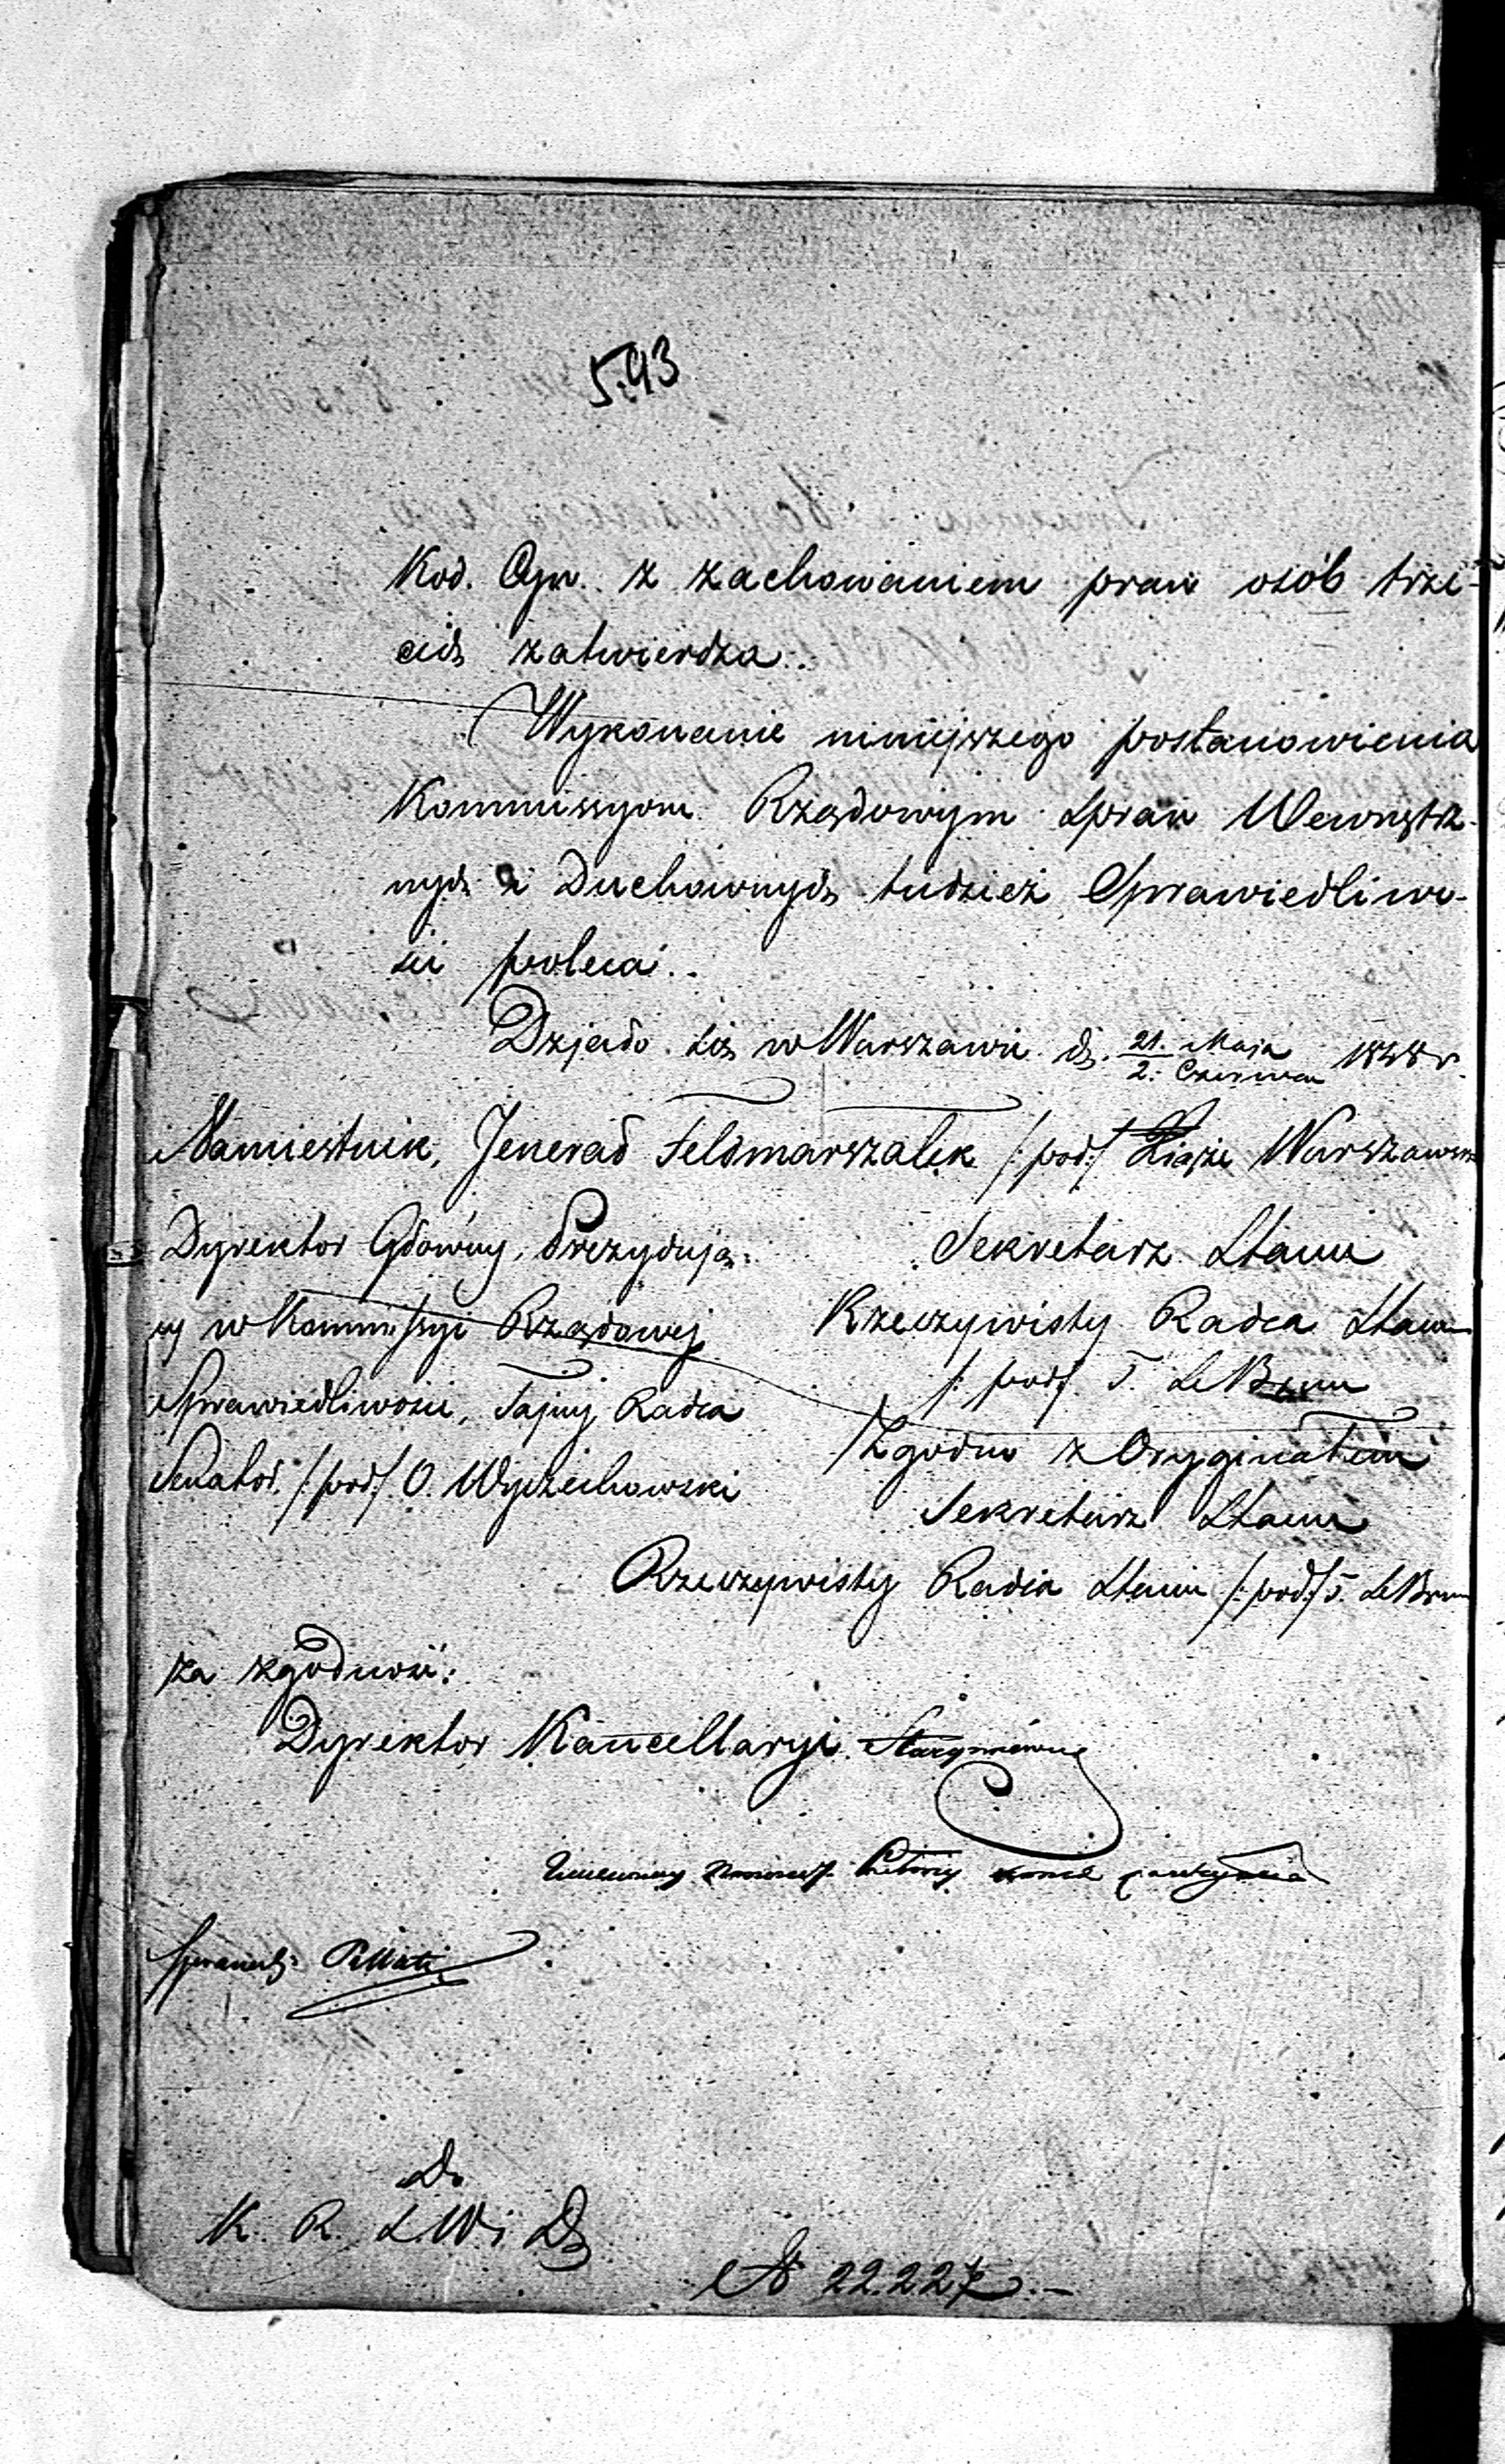 5.43
Kod. Cyw. z zachowaniem praw osób trze-
cich zatwierdza.
Wykonanie niniejszego postanowienia
Kommissyom Rządowym Spraw Wewnętrz-
nych i Duchownych tudzież Sprawiedliwo-
ści poleca.
Działo się w Warszawie d. 21. Maja / 2. Czerwca 1848 r.
Namiestnik, Jenerał Feldmarszałek /:pod:/ Xiąże Warszawski
Dyrektor Główny, Prezydują-
cy w Kommissyi Rządowej
Sprawiedliwości, Tajny Radca
Senator, /:pod:/ O. Wyczechowski
Sekretarz Stanu
Rzeczywisty Radca Stanu
/:pod:/ T. Le Brun
Zgodno z Oryginałem
Sekretarz Stanu
Rzeczywisty Radca Stanu /:pod:/ T. Le Brun
za zgodność:
Dyrektor Kancellaryi
Do
K. R. S. W. i D.
N 22.227.-